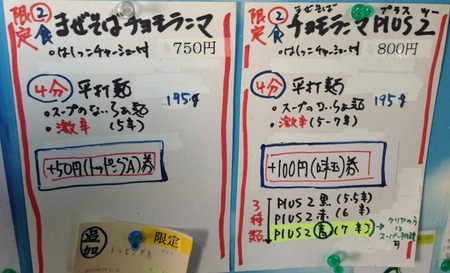 限定②食 まぜそばチョモランマ
・はしっこチャーシュー付 750円
④分 平打麺 195g
・スープのないらぁ麺
・激辛(5辛)
+50円(トッピングA)券
追加 限定
限定②食 チョモランマPlUS2 プラス ツー
・はしっこチャーシュー付 800円
④分 平打麺 195g
・スープのないらぁ麺
・激辛(5-7辛)
+100円(味玉)券
3種類
PlUS2 黒(5.5辛)
PlUS2 赤(6辛)
PlUS2 青(7辛)
クリアの方は